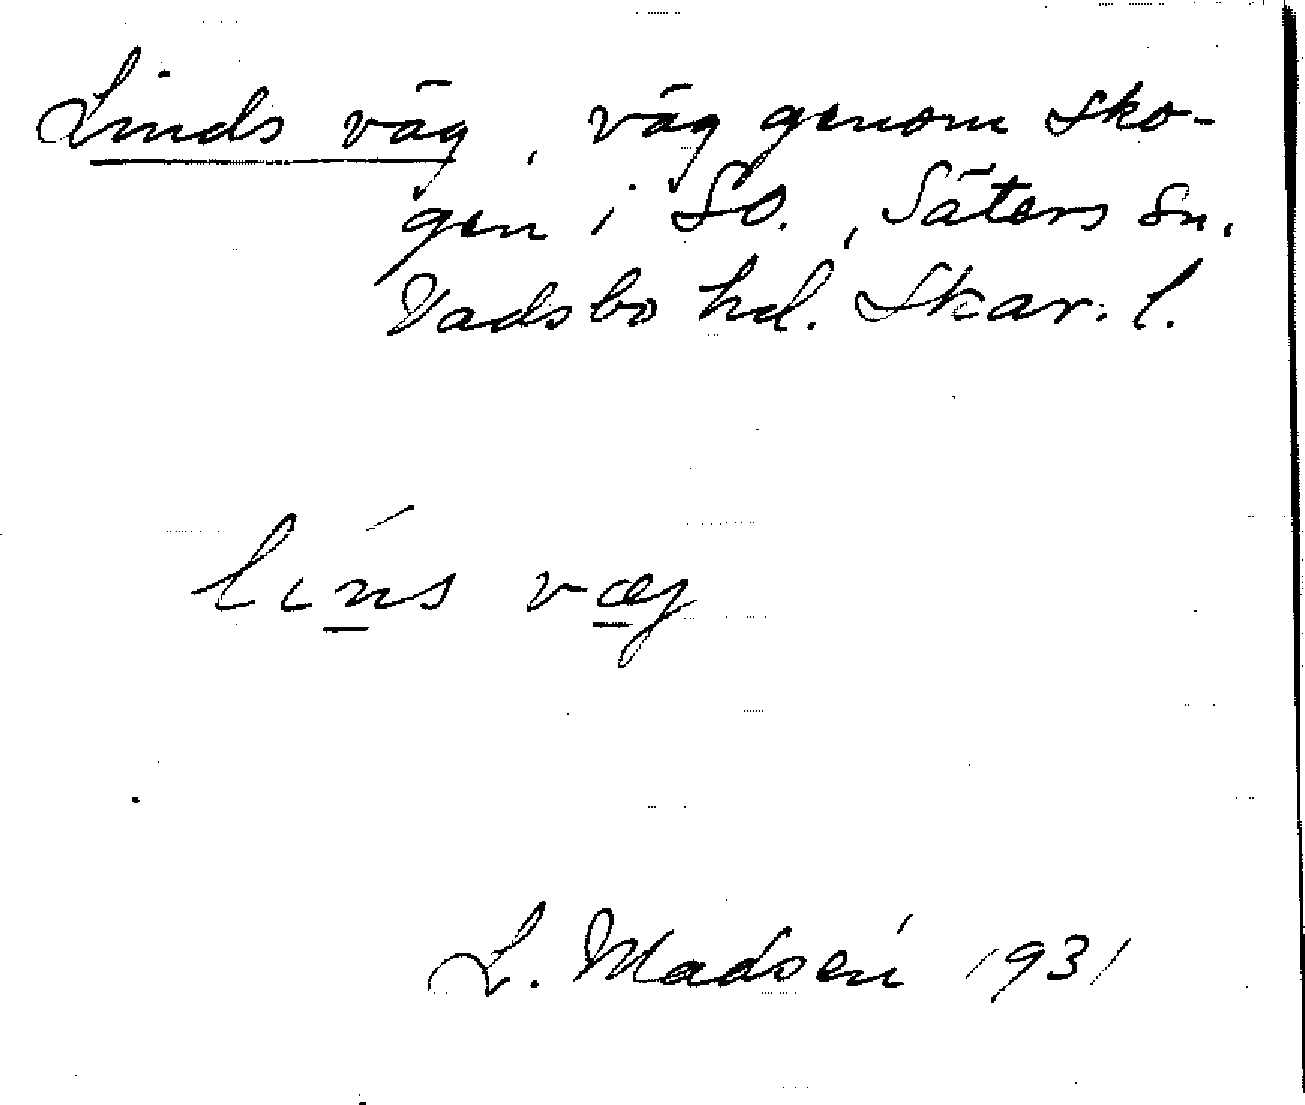 Linds väg, väg genom sko-
gen i SO., Säters sn.
Vadsbo hd. Skar. l.
lıńs væg
L. Madsén 1931